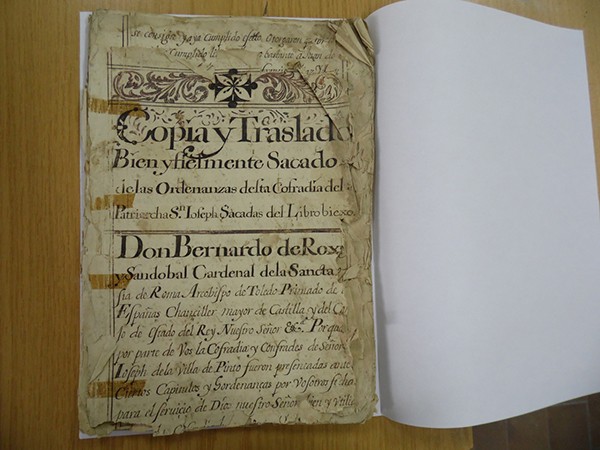 se consiga y aya Cumplido efetto, Otorgaron
Cumplido
Copia y Traslado
Bien y fielmente Sacado
de las Ordenanzas desta Cofradia del
Patriarcha Sn. Ioseph Sacadas del Libro biexo
Don Bernardo de Rox
y Sandobal Cardenal de la Sancta
sia de Roma Arcobispo de Toledo Primado de
Españas Chanciller mayor de Castilla y del Co
so de estado del Rey Nuestro Señor &c. Porqua
por parte de Vos la Cofradia y Confrades de Señor
Ioseph de la Villa de Pinto fueron presentadas ante
Ciertos Capitulos y hordenanzas por Vosotros fechas
para el servicio de Dios nuestro Señor bien y Utili